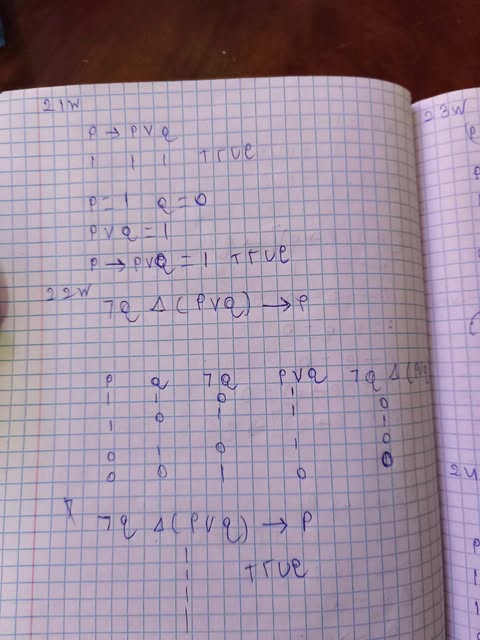 21W
P → P V q
1 1 1 TrUe
P = 1 q = 0
P V q = 1
P → P V q = 1 TrUe
22W
7q Δ (P V q) → P
P q 7q P V q 7q Δ (
1 1 0 1 0
1 0 1 1 1
0 1 0 1 0
0 0 1 0 0
7q Δ (P V q) → P
1
1 TrUe
1
1
23W
(
P
24
P
1
1